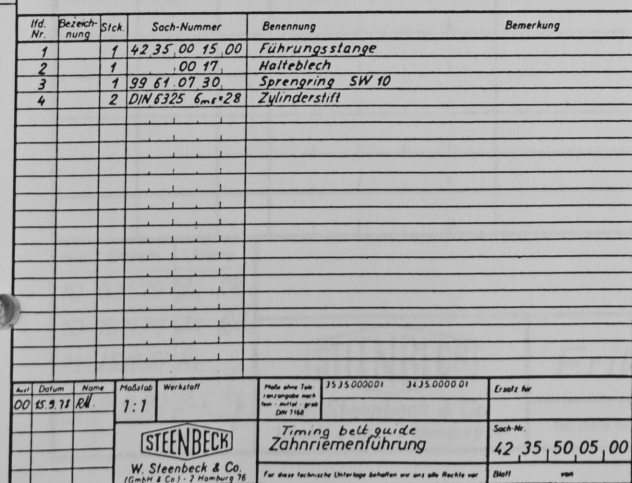 lfd. Nr. Bezeich-nung Stck. Sach-Nummer Benennung Bemerkung
1 1 42 35 00 15 00 Führungsstange
2 1 00 17 Halteblech
3 1 99 61 07 30 Sprengring SW 10
4 2 DIN 6325 6m6x28 Zylinderstift
Ausf Datum Name Maßstab Werkstoff
00 15.9.78
1:1
Maße ohne Tole-
ranzangabe nach
fein - mittel - grob
DIN 7168
35 35.000001 34 35.0000 01
Ersatz für
STEENBECK
W. Steenbeck & Co.
(GmbH & Co) - 2 Hamburg 76
Timing belt guide
Zahnriemenführung
Für diese technische Unterlage behalten wir uns alle Rechte vor
Sach-Nr.
42 35 50 05 00
Blatt von